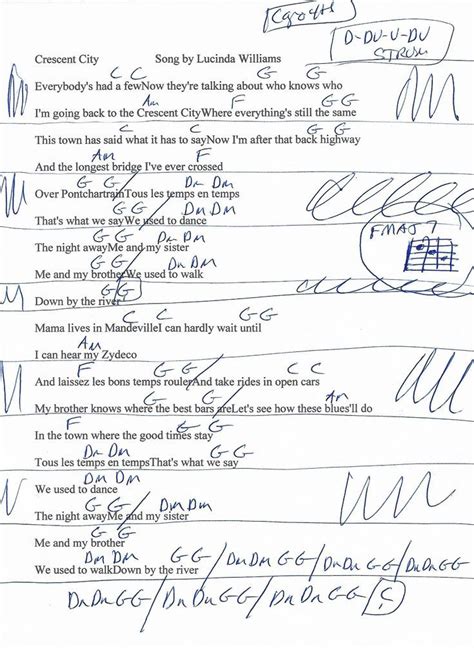 D-DU-U-DU
STRUM
Crescent City Song by Lucinda Williams
C C G G
Everybody's had a fewNow they're talking about who knows who
Am F G G
I'm going back to the Crescent CityWhere everything's still the same
C C G G
This town has said what it has to sayNow I'm after that back highway
Am F
And the longest bridge I've ever crossed
G G / Dm Dm
Over PontchartrainTous les temps en temps
G G / Dm Dm
That's what we sayWe used to dance
G G / Dm Dm
The night awayMe and my sister
FMAJ 7
G G / Dm Dm
Me and my brotherWe used to walk
G G
Down by the river
C C G G
Mama lives in MandevilleI can hardly wait until
Am
I can hear my Zydeco
F G G C C
And laissez les bons temps roulerAnd take rides in open cars
G G Am
My brother knows where the best bars areLet's see how these blues'll do
F G G
In the town where the good times stay
Dm Dm / G G
Tous les temps en tempsThat's what we say
Dm Dm
We used to dance
G G / Dm Dm
The night awayMe and my sister
G G
Me and my brother
Dm Dm G G / Dm Dm G G / Dm Dm G G / Dm Dm G G
We used to walkDown by the river
Dm Dm G G / Dm Dm G G / Dm Dm G G / C